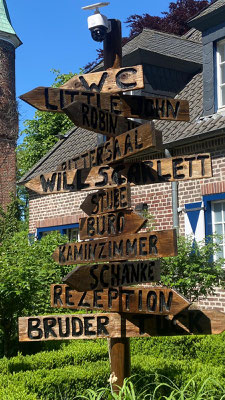 WC
LITTLE JOHN
ROBIN
RITTERSAAL
WILL SCARLETT
STUBE
BÜRO
KAMINZIMMER
SCHÄNKE
REZEPTION
BRUDER